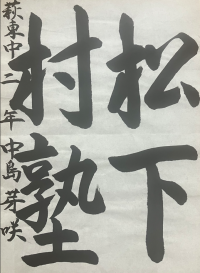 松下
村塾
萩東中二年中島芽咲